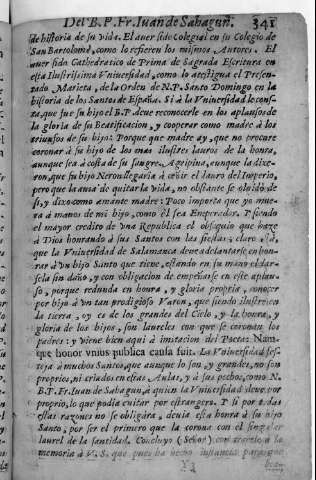 Del B. P. Fr. Iuan de Sahagun. 341
de historia de su vida. El auer sido Colegial en su Colegio de
San Bartolomè, como lo refieren los mismos Autores. El
auer sido Cathedratico de Prima de Sagrada Escritura en
esta Ilustrissima Vniuersidad, como lo atestigua el Presen-
tado Marieta, de la Orden de N. P. Santo Domingo en la
historia de los Santos de España. Si à la Vniuersidad le cons-
ta, que fue su hijo el B. P. deue reconocerle en los aplausos de
la gloria de su Beatificacion, y cooperar como madre à los
triunfos de su hijo: Porque que madre ay, que no procure
coronar à su hijo de los mas ilustres lauros de la honra,
aunque sea à costa de su sangre. Agripina, aunque la dixe-
ron, que su hijo Neron llegaria à ceñir el lauro del Imperio,
pero que la auia de quitar la vida, no obstante se oluidò de
si, y dixo como amante madre: Poco importa que yo mue-
ra à manos de mi hijo, como èl sea Emperador. Y siendo
el mayor credito de vna Republica el obsequio que haze
à Dios honrando à sus Santos con las fiestas; claro està,
que la Vniuersidad de Salamanca deue adelantarse en hon-
rar à vn hijo Santo que tiene, estando en su mano
sela sin daño, y con obligacion de empeñarse en este aplau-
so, porque redunda en honra, y gloria propria, conocer
por hijo à vn tan prodigioso Varon, que siendo ilustre en
la tierra, oy es de los grandes del Cielo, y la honra, y
gloria de los hijos, son laureles con que se coronan los
padres: y viene bien aqui à imitacion del Poeta: Nam-
que honor vnius publica causa fuit. La Vniuersidad fes-
teja à muchos Santos, que aunque lo son, y grandes, no son
proprios, ni criados en estas Aulas, y à sus pechos, como N.
B. P. Fr. Iuan de Sahagun, à quien la Vniuersidad deue por
proprio, lo que podia euitar por estrangero. Y si por todas
estas razones no se obligàra, deuia esta honra à su hijo
Santo, por ser el primero que la corona con el singular
laurel de la santidad. Concluyo (Señor) con traerle à la
memoria à V. S. que pues ha hecho instancia para que
Y 3